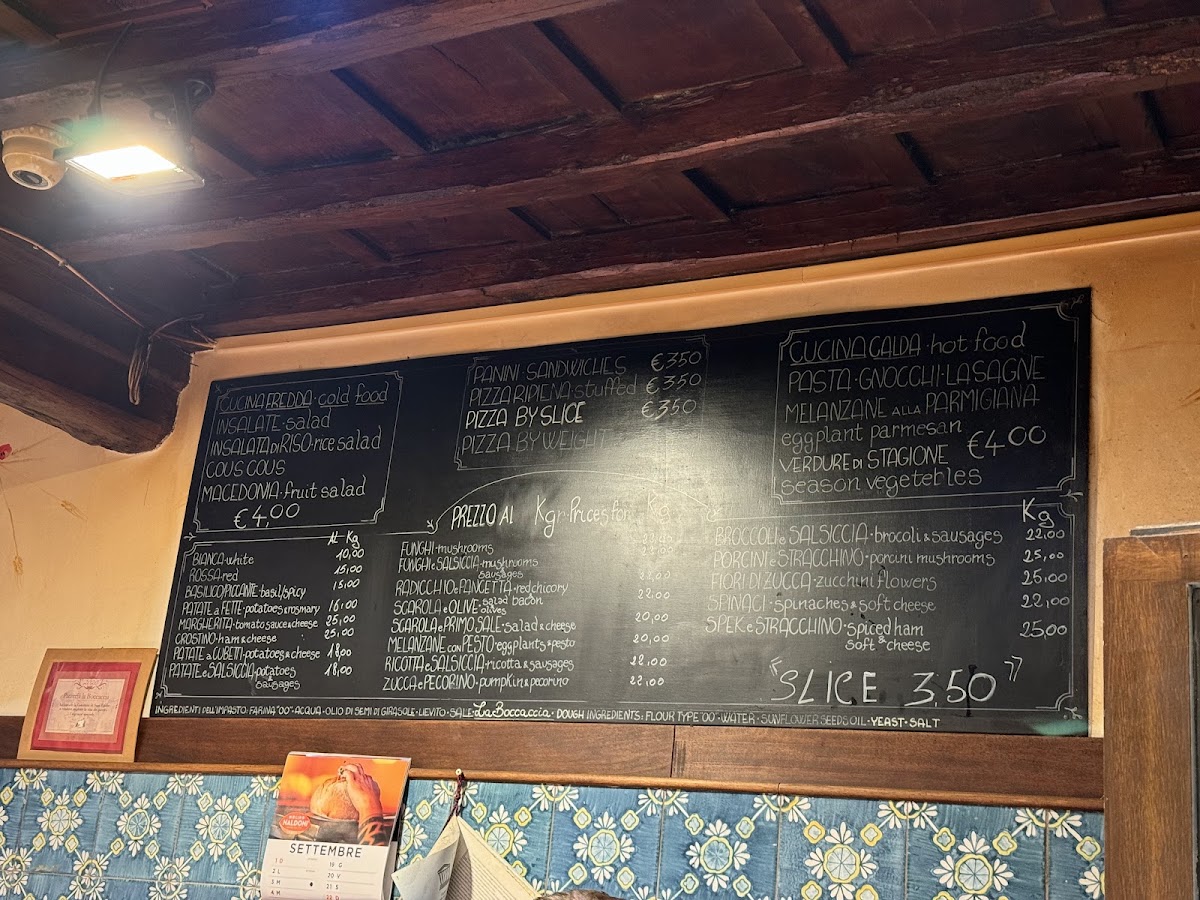 CUCINA FREDDA · cold food
INSALATE · salad
INSALATA di RISO · rice salad
COUS COUS
MACEDONIA · fruit salad
€ 4,00
PANINI · SANDWICHES €3,50
PIZZA RIPIENA · stuffed €3,50
PIZZA BY SLICE €3,50
PIZZA BY WEIGHT
CUCINA CALDA · hot food
PASTA · GNOCCHI · LASAGNE
MELANZANE ALLA PARMIGIANA
eggplant parmesan
€4,00
VERDURE DI STAGIONE
season vegetebles
PREZZO AL Kgr · Prices for Kg
Al Kg
BIANCA · white 10,00
ROSSA · red 15,00
BASILICO/PICCANTE · basil/spicy 15,00
PATATE a FETTE · potatoes & rosmary 16,00
MARGHERITA · tomato sauce & cheese 25,00
CROSTINO · ham & cheese 25,00
PATATE a CUBETTI · potatoes & cheese 18,00
PATATE e SALSICCIA · potatoes 18,00
& sausages
FUNGHI · mushrooms
FUNGHI e SALSICCIA · mushrooms
sausages
RADICCHIO e PANCETTA · red chicory 22,00
salad bacon
SCAROLA e OLIVE · olives
SCAROLA e PRIMO SALE · salad & cheese 20,00
MELANZANE con PESTO · eggplants & pesto 20,00
RICOTTA e SALSICCIA · ricotta & sausages 22,00
ZUCCA e PECORINO · pumpkin & pecorino 22,00
Kg
BROCCOLI e SALSICCIA · brocoli & sausages 22,00
PORCINI e STRACCHINO · porcini mushrooms 25,00
FIORI DI ZUCCA · zucchini flowers 25,00
SPINACI · spinaches & soft cheese 22,00
SPEK e STRACCHINO · spiced ham 25,00
soft & cheese
"SLICE 3,50"
INGREDIENTI DELL'IMPASTO: FARINA "00" · ACQUA · OLIO DI SEMI DI GIRASOLE · LIEVITO · SALE · La Boccaccia · DOUGH INGREDIENTS: FLOUR TYPE "00" · WATER · SUNFLOWER SEEDS OIL · YEAST · SALT
HALDOM
SETTEMBRE
1 D 19 G
2 L 20 V
3 M 21 S
4 M 22 D